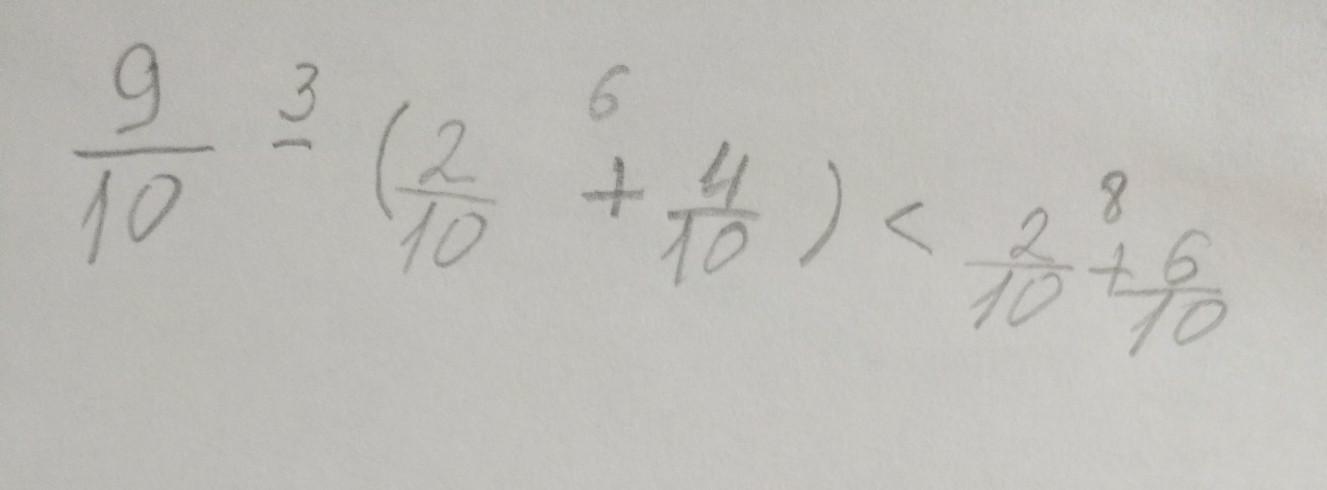 9/10 - 3 (2/10 + 6 4/10) < 2/10 + 8 6/10